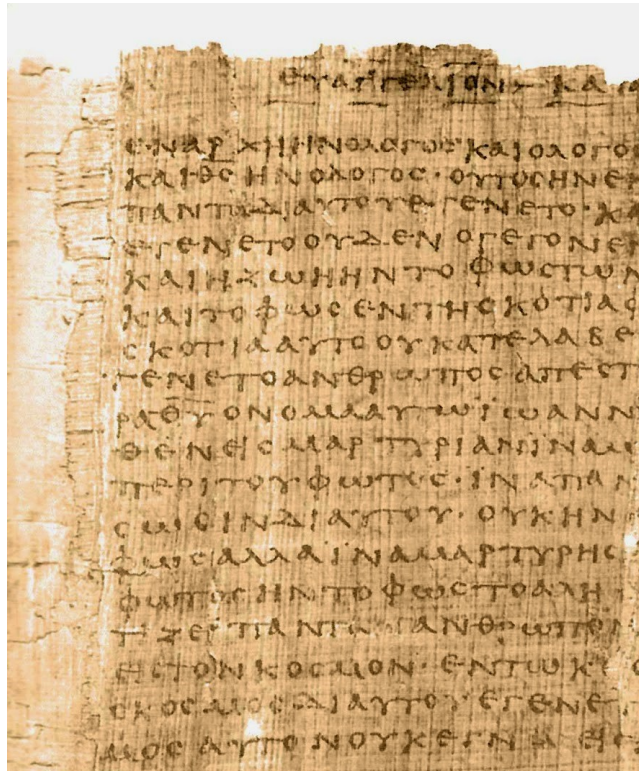 ΕΥΑΓΓΕΛΙΟΝ ΚΑΤΑ
ΕΝΑΡΧΗΗΝΟΛΟΓΟϹΚΑΙΟΛΟΓΟϹ
ΚΑΙΘ̅Ϲ̅ΗΝΟΛΟΓΟϹ·ΟΥΤΟϹΗΝΕΝ
ΠΑΝΤΑΔΙΑΥΤΟΥΕΓΕΝΕΤΟ·ΚΑ
ΕΓΕΝΕΤΟΟΥΔΕΝΟΓΕΓΟΝΕΝ
ΚΑΙΗΖΩΗΗΝΤΟΦΩϹΤΩΝ
ΚΑΙΤΟΦΩϹΕΝΤΗϹΚΟΤΙΑΦ
ϹΚΟΤΙΑΑΥΤΟΟΥΚΑΤΕΛΑΒΕ
ΓΕΝΕΤΟΑΝΘΡΩΠΟϹΑΠΕϹΤ
ΡΑΘ̅Υ̅ΟΝΟΜΑΑΥΤΩΪΩΑΝΝ
ΘΕΝΕΙϹΜΑΡΤΥΡΙΑΝΪΝΑΜ
ΠΕΡΙΤΟΥΦΩΤΟϹ·ΙΝΑΠΑΝ
ϹΩϹΙΝΔΙΑΥΤΟΥ·ΟΥΚΗΝ
ΦΩϹΑΛΛΑΪΝΑΜΑΡΤΥΡΗϹ
ΦΩΤΟϹΗΝΤΟΦΩϹΤΟΑΛΗ
ΤΙΖΕΙΠΑΝΤΑΑΝΘΡΩΠΟΝ
ΕΙϹΤΟΝΚΟϹΜΟΝ·ΕΝΤΩΚ
ΟΚΟϹΜΟϹΔΙΑΥΤΟΥΕΓΕΝΕ
ΜΟϹΑΥΤΟΝΟΥΚΕΓΝΩΕΙϹ